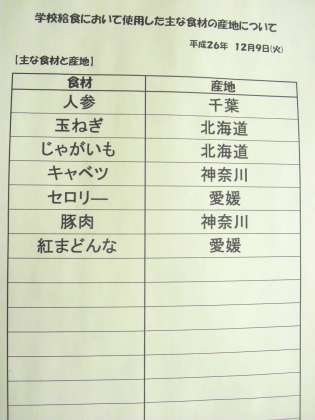 学校給食において使用した主な食材の産地について
平成26年 12月9日(火)
【主な食材と産地】
食材 産地
人参 千葉
玉ねぎ 北海道
じゃがいも 北海道
キャベツ 神奈川
セロリー 愛媛
豚肉 神奈川
紅まどんな 愛媛